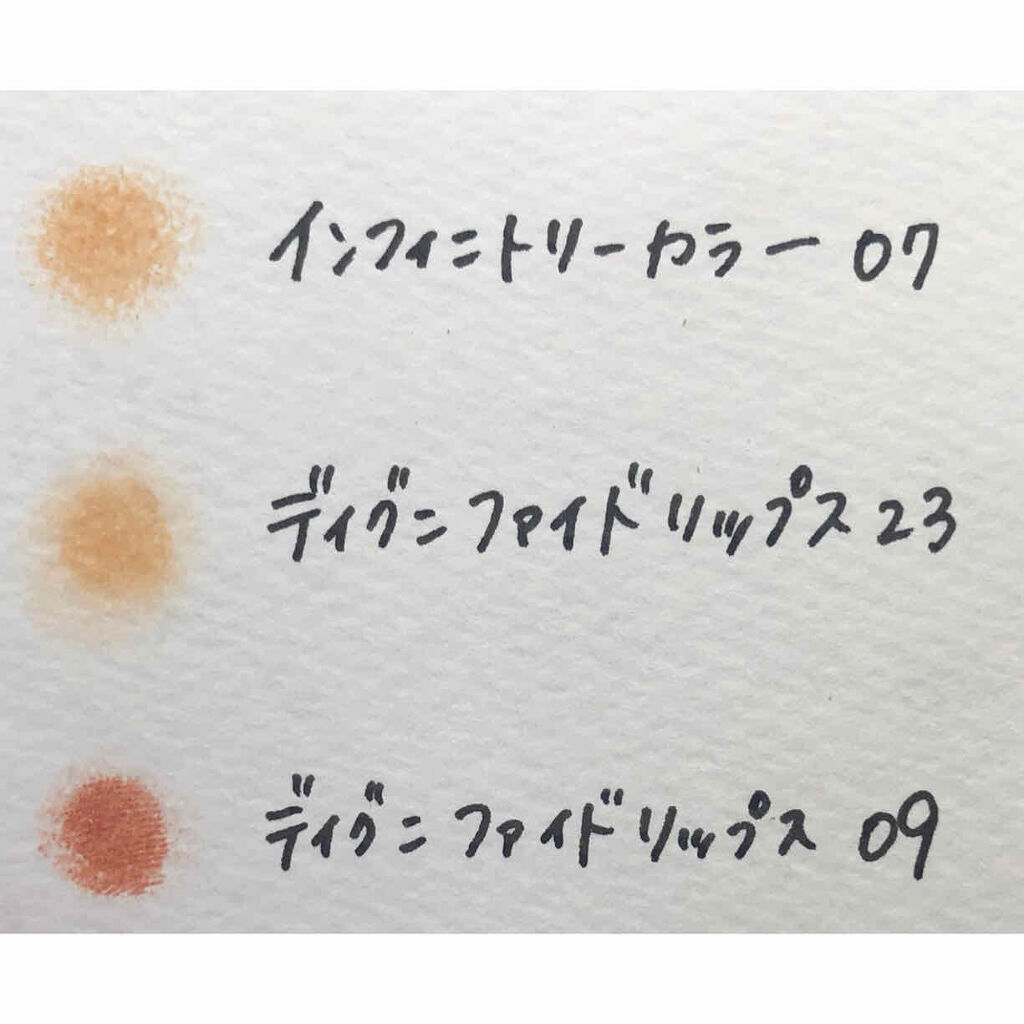 インフィニトリーカラー 07
ディグニファイドリップス 23
ディグニファイドリップス 09